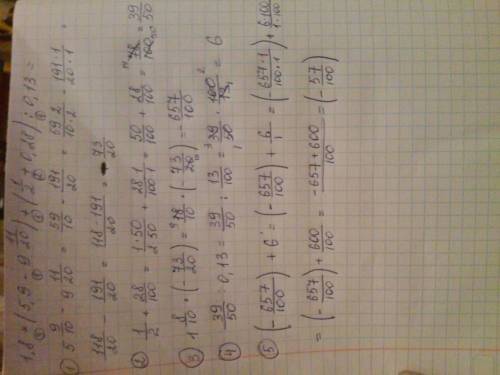 1,8 * (5,9 - 9 11/20) + (1/2 + 0,28) : 0,13 =
① 5 9/10 - 9 11/20 = 59/10 - 191/20 = 59·2/10·2 - 191·1/20·1 =
118/20 - 191/20 = 118-191/20 = - 73/20
② 1/2 + 28/100 = 1·50/2·50 + 28·1/100·1 = 50/100 + 28/100 = 78/100 = 39/50
③ 1 8/10 * (- 73/20) = 18/10 * (- 73/20) = - 657/100
④ 39/50 : 0,13 = 39/50 : 13/100 = 39/50 · 100/13 = 6
⑤ (- 657/100) + 6 = (- 657/100) + 6/1 = (- 657·1/100·1) + 6·100/1·100
= (- 657/100) + 600/100 = -657+600/100 = (- 57/100)